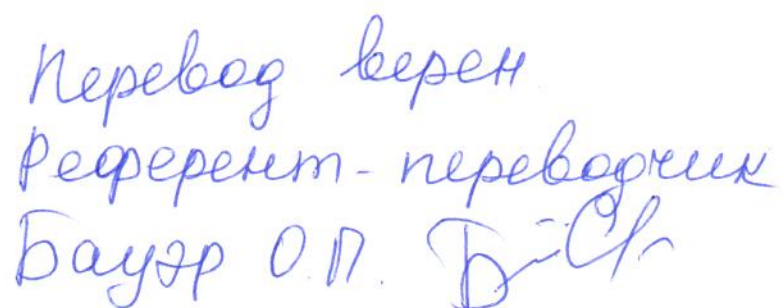 Перевод верен
Референт-переводчик
Бауэр О.П.